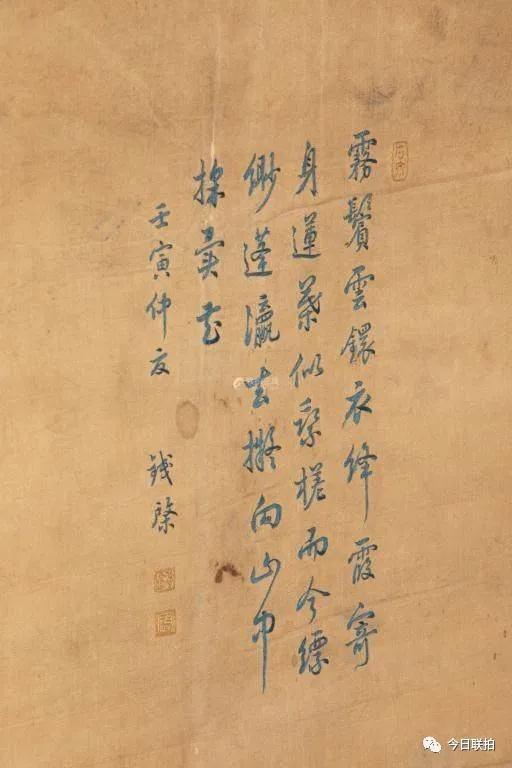 霧鬢雲鐶衣絳霞寄
身蓮葉似乘槎而今縹
緲蓬瀛去擬向山中
採異花
壬寅仲夏 錢棨
今日联拍